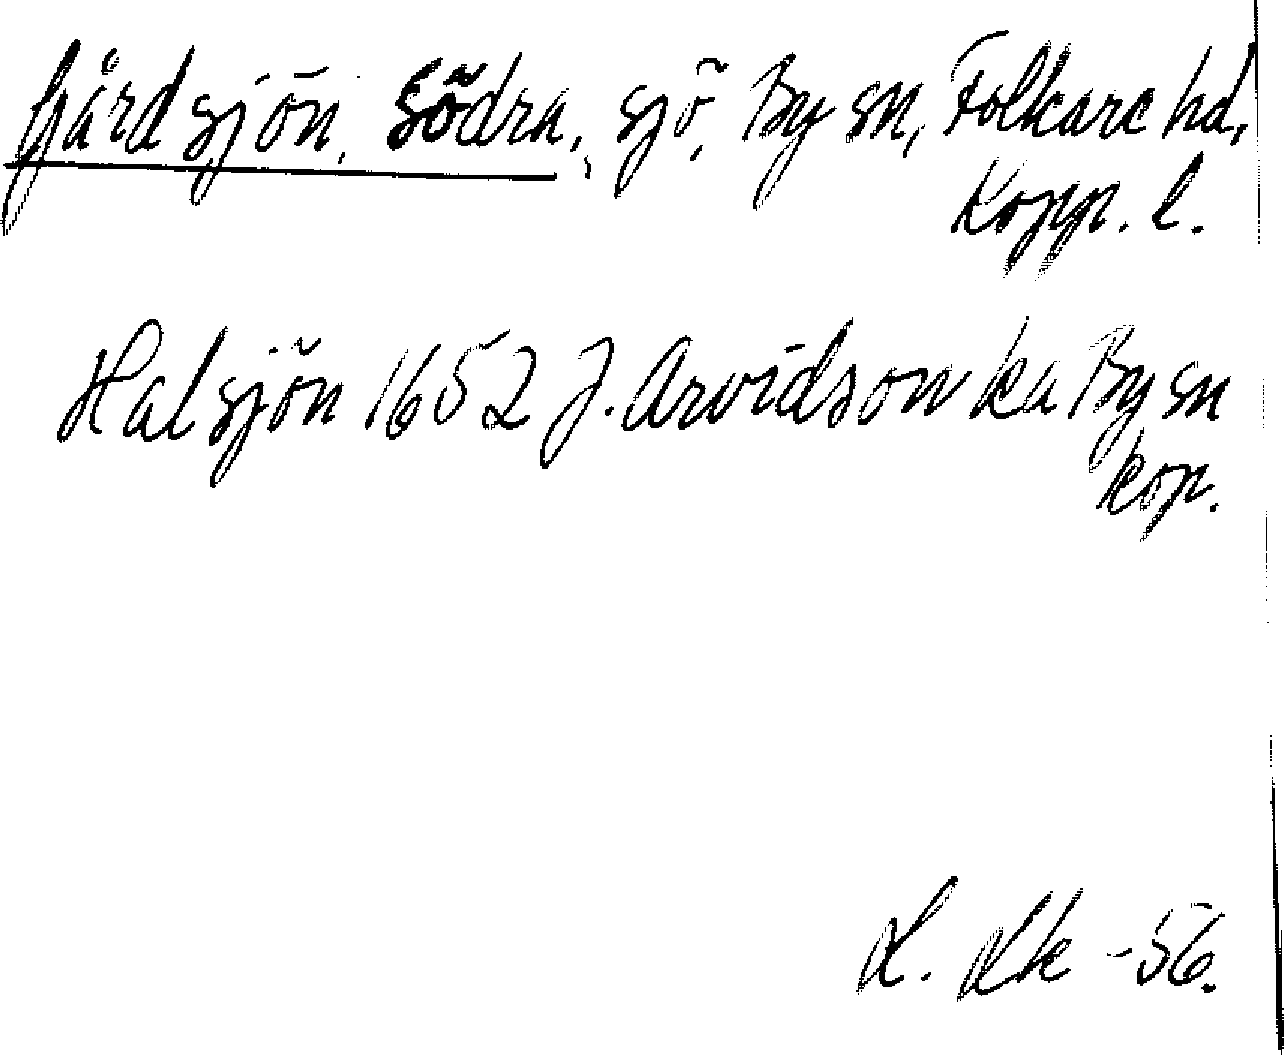 fjärdsjön, Södra, sjö, By sn, Folkare hd,
Kopp. l.
Halsjön 1652 J. Arvidson ka By sn
kop.
L. -56.